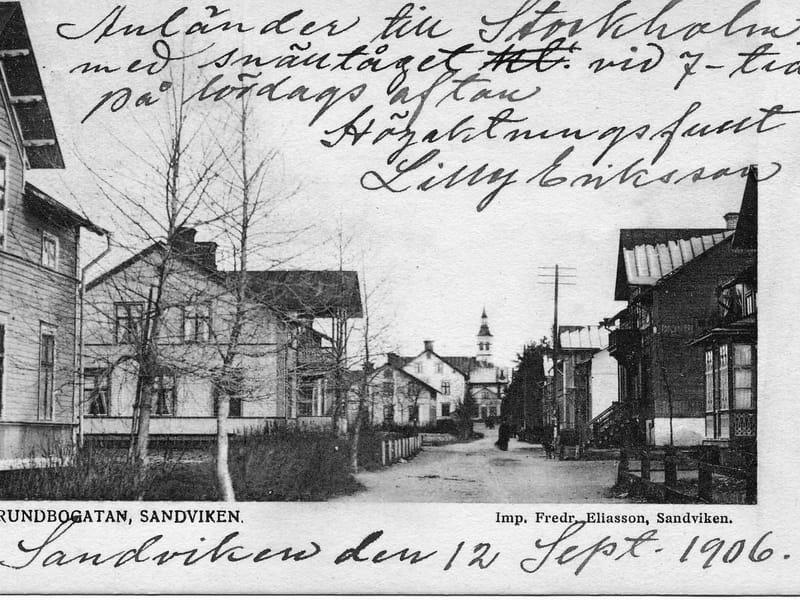 Anländer till Stockholm
med snäutåget kl. vid 7-tid
på lördags aftan
Högaktningsfullt
Lilly Eriksson
RUNDBOGATAN, SANDVIKEN.
Imp. Fredr. Eliasson, Sandviken.
Sandviken den 12 Sept. 1906.